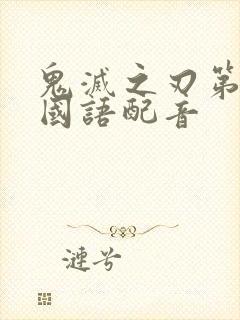 鬼滅之刃第
國語配音
漣兮